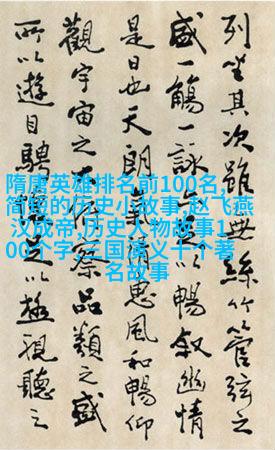 列坐其次雖無絲竹管弦之
盛一觴一詠亦足以暢敘幽情
是日也天朗氣清惠風和暢仰
觀宇宙之大俯察品類之盛
所以遊目騁懷足以極視聽之
隋唐英雄排名前100名,
简短的历史小故事,赵飞燕
汉成帝,历史人物故事1
00个字,三国演义十个著
名故事